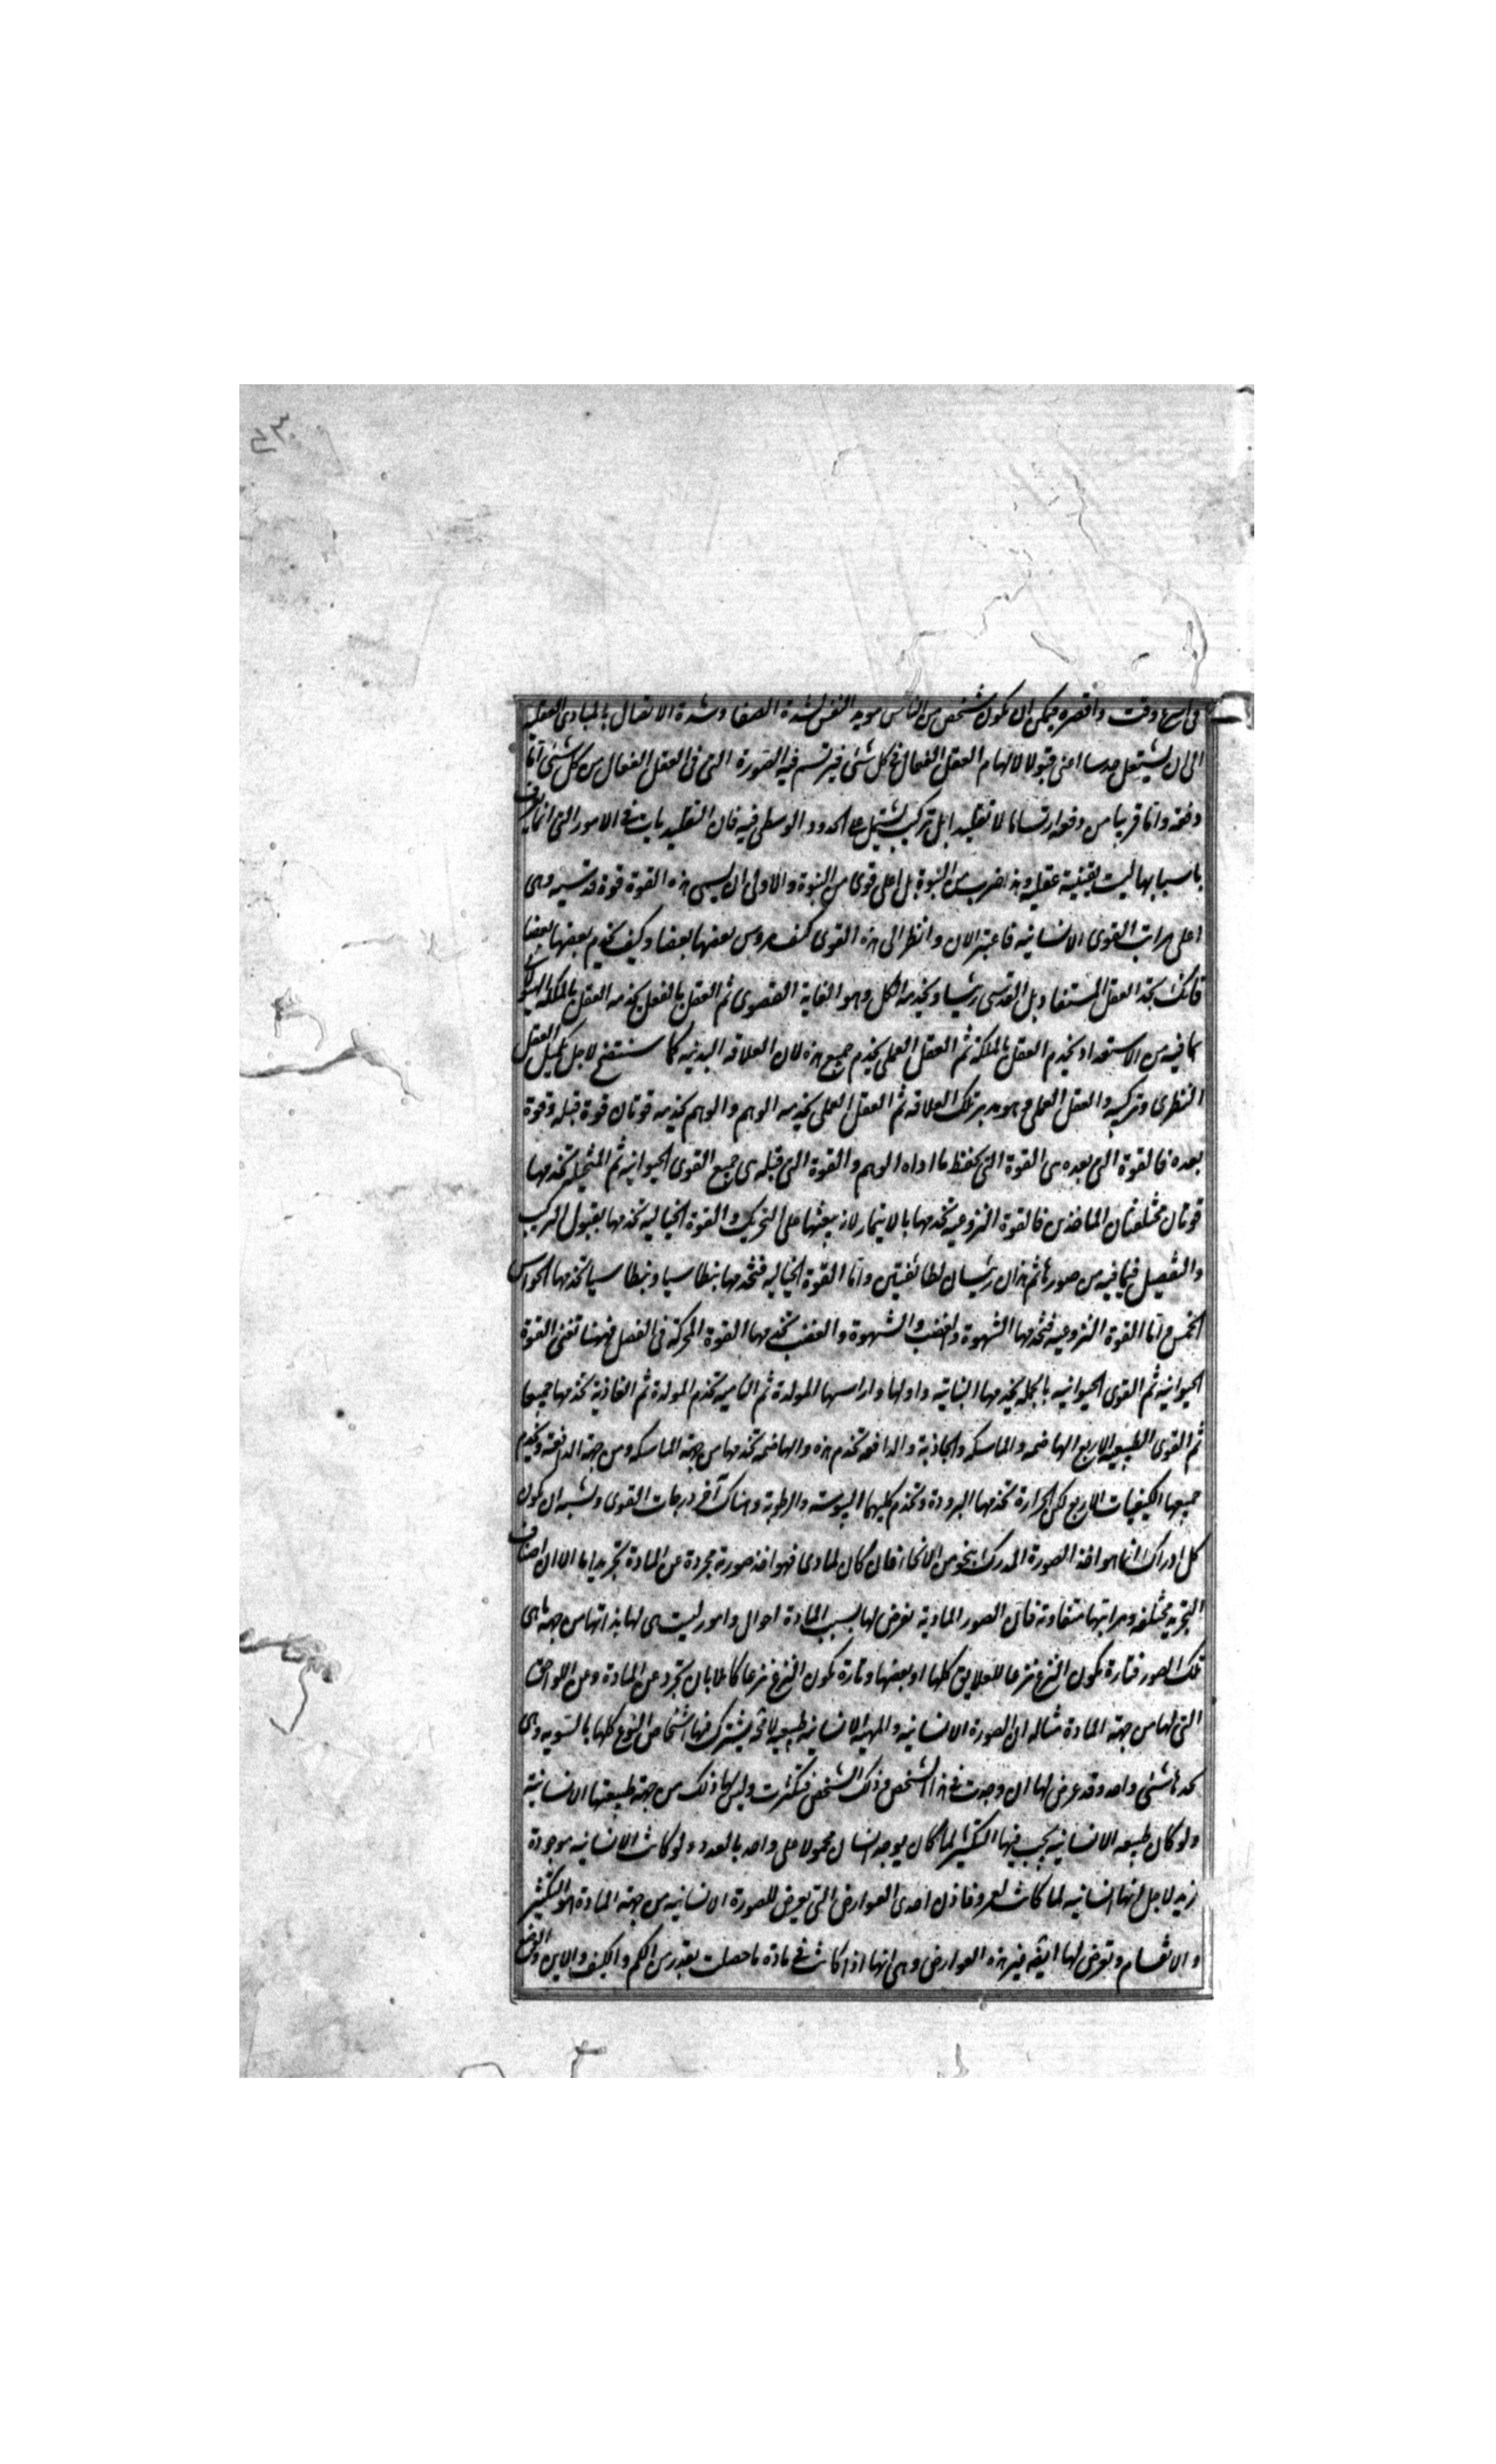 في اسرع وقت واقصره فيمكن ان يكون شخص من الناس مويد النفس لشدة الصفا وشدة الاتصال بالمبادى العقلية
الى ان يشتعل حدسا اعنى قبولا لالهام العقل الفعال في كل شئ فيرتسم فيه الصورة التى في العقل الفعال من كل شئ اما
دفعة واما قريبا من دفعة ارتساما لا تقليدا بل بتركيب يشتمل على الحدود الوسطى فيه فان التقليديات في الامور التى انما يعرف
باسبابها ليست يقينية عقلية وهذا ضرب من النبوة بل اعلى قوى من النبوة والاولى ان يسمى هذه القوة قوة قدسيه وهى
اعلى مراتب القوى الانسانيه فاعتبر الان وانظر الى هذه القوى كيف يروس بعضها بعضا وكيف يخدم بعضها بعضا
فانك تجد العقل المستفاد بل القدسى رئيسا ويخدمه الكل وهو الغاية القصوى ثم العقل بالفعل يخدمه العقل بالملكة والهيولانى
بما فيه من الاستعداد يخدم العقل بالملكة ثم العقل العملى يخدم جميع هذه لان العلاقه البدنيه كما ستتضح لاجل تكميل العقل
النظرى وتزكيه والعقل العملى هو مدبر تلك العلاقه ثم العقل العملى يخدمه الوهم والوهم يخدمه قوتان قوة قبله وقوة
بعده فالقوة التى بعده هى القوة التى تحفظ ما اداه الوهم والقوة التى قبله هى جميع القوى الحيوانيه ثم المتخيله تخدمها
قوتان مختلفتان الماخذين فالقوة النزوعيه تخدمها بالايتمار لانه يبعثها على التحريك والقوة الخياليه تخدمها بقبول التركيب
والتفصيل فيما فيه من صوره ثم هذان رئيسان لطائفتين واما القوة الخياليه فتخدمها بنطاسيا وبنطاسيا تخدمها الحواس
الخمس واما القوة النزوعيه فتخدمها الشهوة والغضب والشهوة والغضب تخدمها القوة المحركة في العضل فهنا تفنى القوة
الحيوانيه ثم القوى الحيوانيه بالجمله يخدمها النباتيه واولها واراسها المولدة ثم الناميه تخدم المولدة ثم الغاذية تخدمها جميعا
ثم القوى الطبيعيه الاربع الهاضمه والماسكه والجاذبة والدافعه تخدم هذه والهاضمه تخدمها من جهة الماسكه ومن جهة الدافعة وتخدم
جميعها الكيفيات الاربع لكن الحرارة تخدمها البرودة وتخدم كليهما اليبوسه والرطوبة وهناك آخر درجات القوى ويشبه ان يكون
كل ادراك انما هو اخذ الصورة المدرك بنحو من الانحا فان كان لمادى فهو اخذ صورته مجردة عن المادة تجريدا ما الا ان اصناف
التجريد مختلفه ومراتبها متفاوته فان الصور المادية تعرض لها بسبب المادة احوال وامور ليست هى لها بذاتها من جهة ما هى
تلك الصور فتارة يكون النزع نزعا للعلايق كلها او بعضها وتارة يكون النزع نزعا كاملا بان يجرد عن المادة وعن اللواحق
التى لها من جهة المادة مثاله ان الصورة الانسانيه والمهيه الانسانيه طبيعه لا محه يشترك فيها اشخاص النوع كلها بالسويه وهى
بحدها شئ واحد وقد عرض لها ان وجدت في هذا الشخص وذلك الشخص فتكثرت وليس لها ذلك من جهة طبيعتها الانسانية
ولو كان طبيعه الانسانيه يجب فيها التكثير لما كان يوجد انسان محمولا على واحد بالعدد ولو كانت الانسانيه موجودة
زيد لاجل انها انسانيه لما كانت لعمرو فاذن احدى العوارض التى يعرض للصورة الانسانيه من جهة المادة هو التكثير
والانقسام وتعرض لها ايضه غير هذه العوارض وهى انها اذا كانت في مادة ما حصلت بقدر من الكم والكيف والاين والوضع